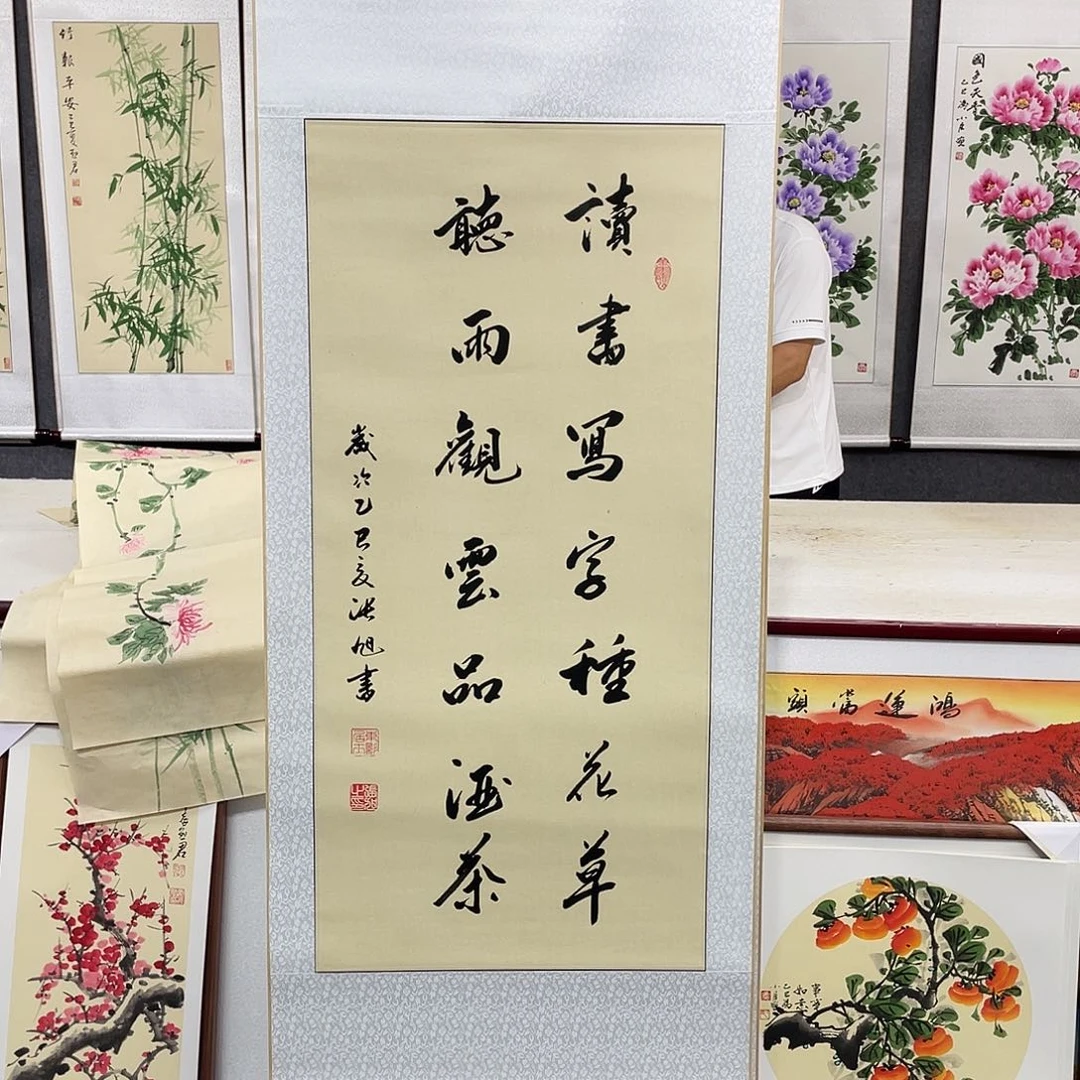 讀書寫字種花草
聽雨觀雲品酒茶
歲次乙巳夏張旭書
國色天香
鴻運當頭
竹報平安